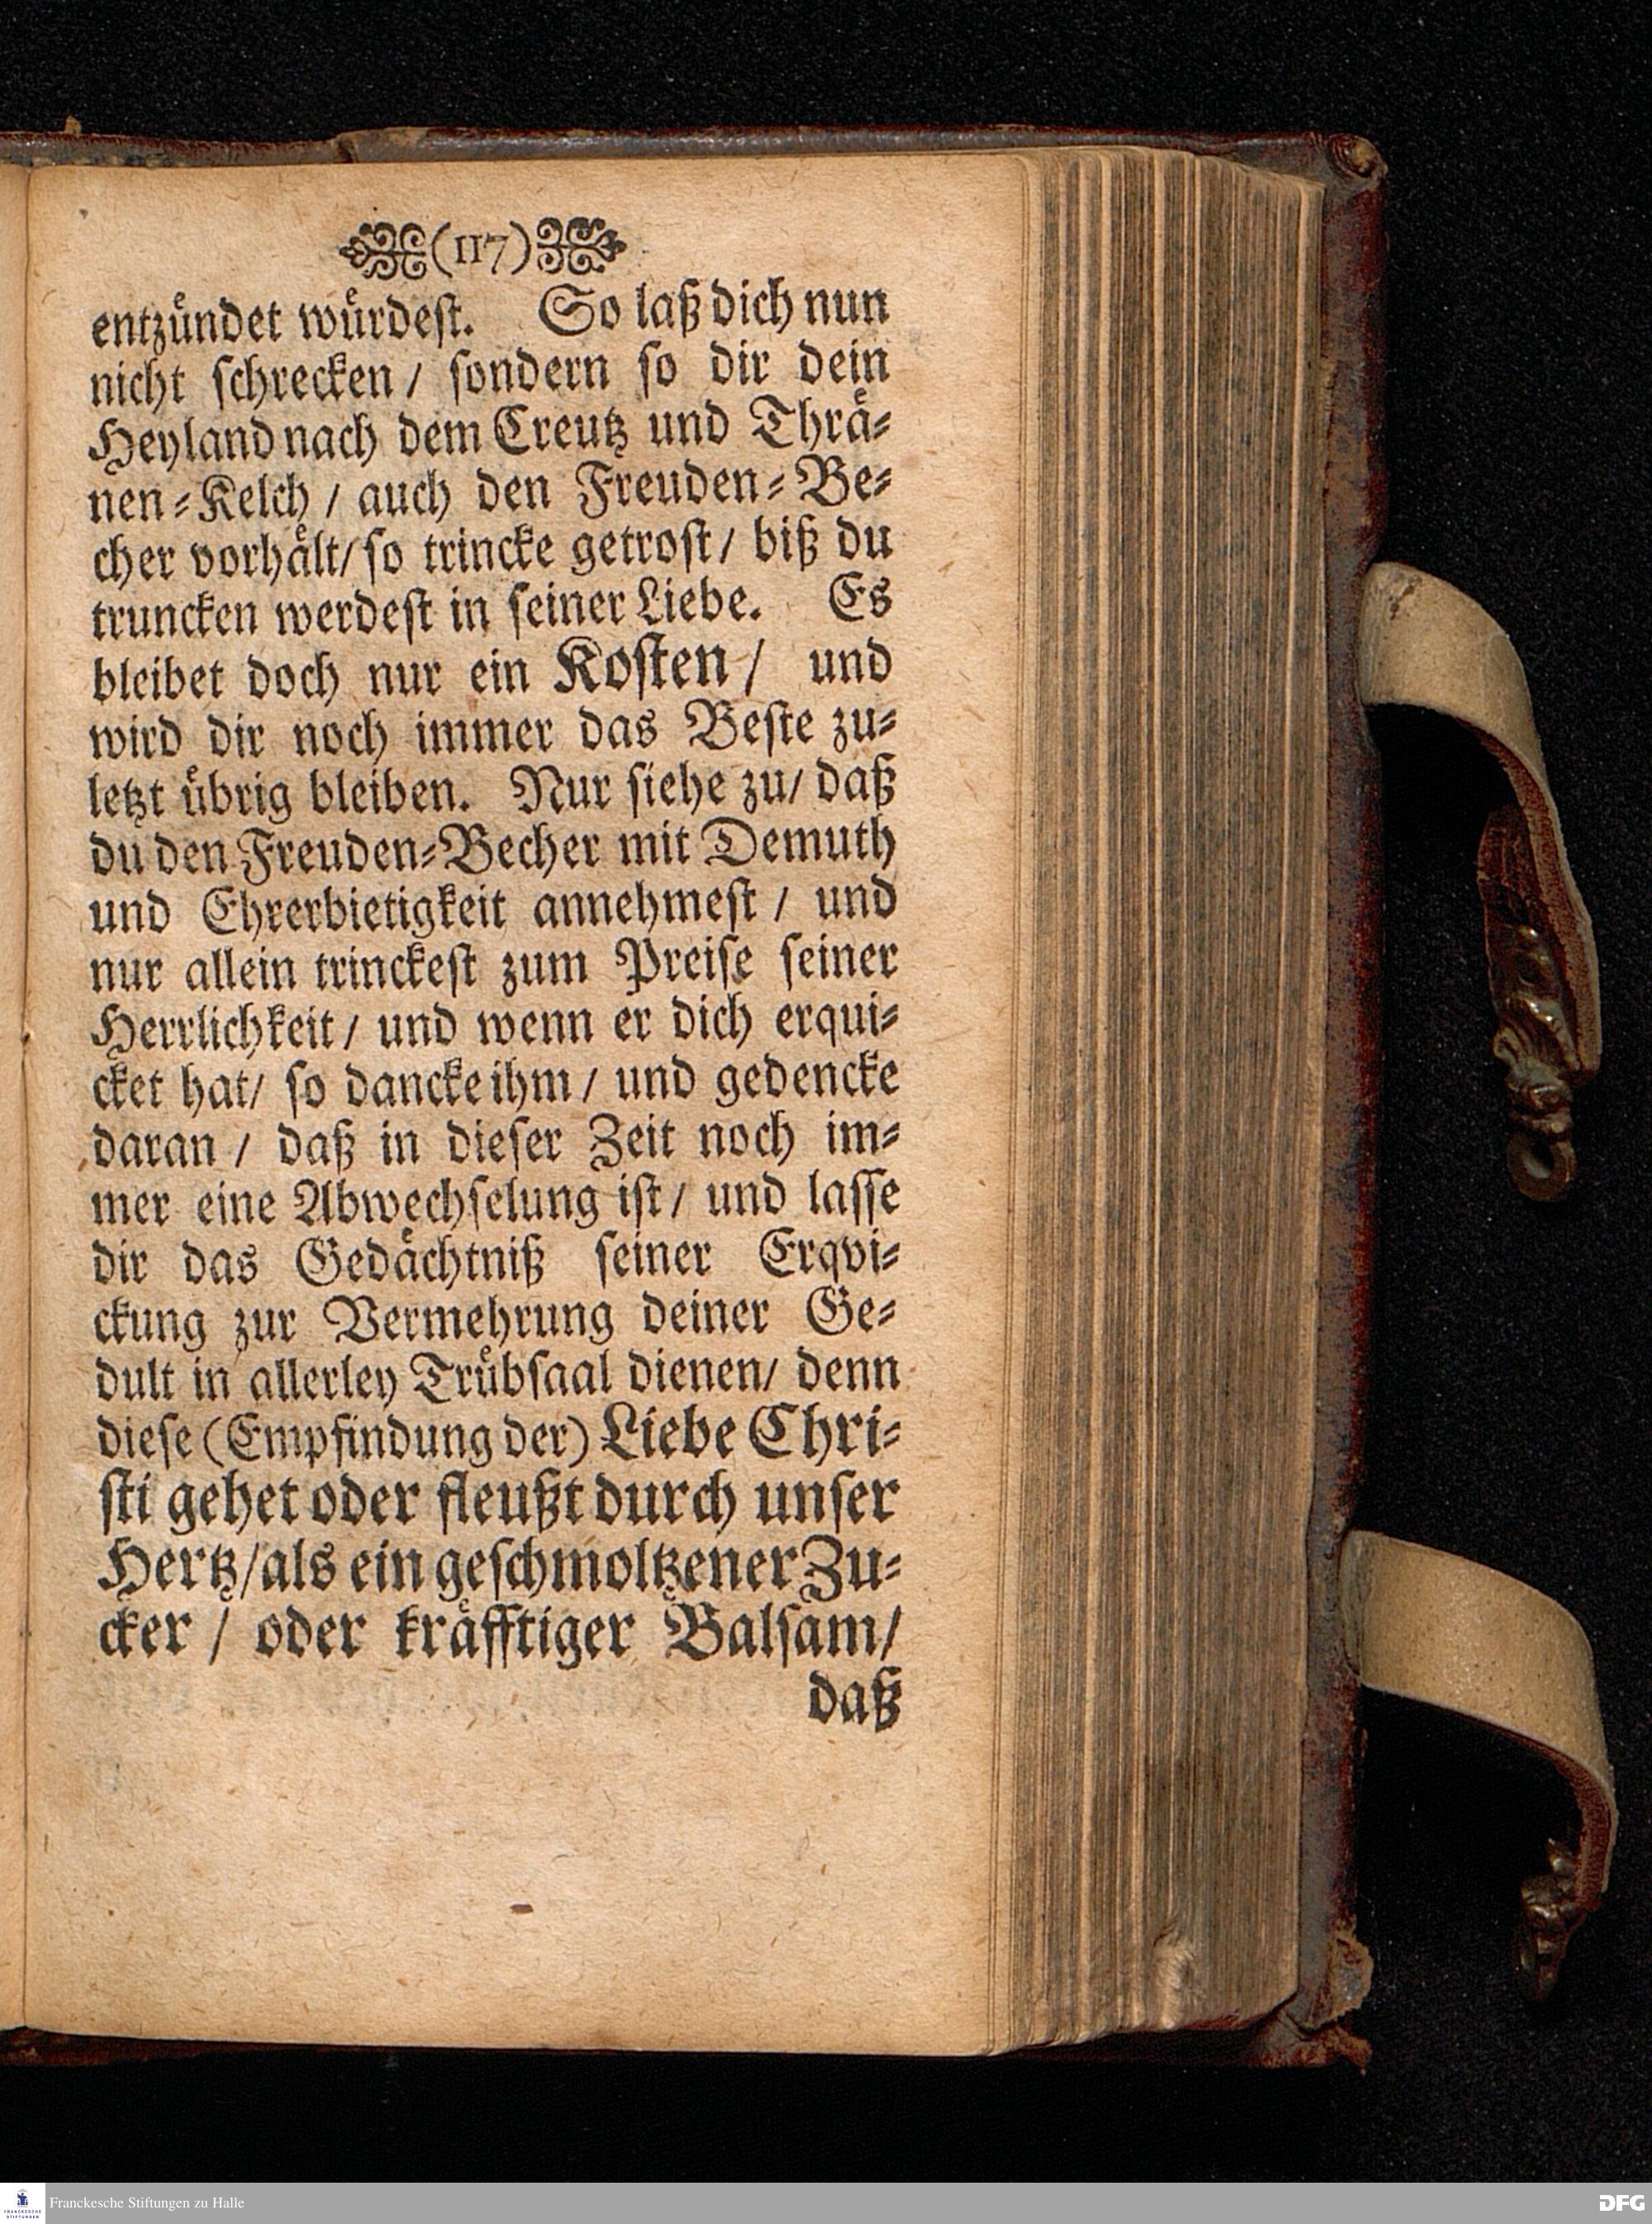 (117)
entzündet würdest. So laß dich nun
nicht schrecken / sondern so dir dein
Heyland nach dem Creutz und Thrä⸗
nen⸗Kelch / auch den Freuden⸗Be⸗
cher vorhält / so trincke getrost / biß du
truncken werdest in seiner Liebe. Es
bleibet doch nur ein Kosten / und
wird dir noch immer das Beste zu⸗
letzt übrig bleiben. Nur siehe zu / daß
du den Freuden⸗Becher mit Demuth
und Ehrerbietigkeit annehmest / und
nur allein trinckest zum Preise seiner
Herrlichkeit / und wenn er dich erqui⸗
cket hat / so dancke ihm / und gedencke
daran / daß in dieser Zeit noch im⸗
mer eine Abwechselung ist / und lasse
dir das Gedächtniß seiner Erqvi⸗
ckung zur Vermehrung deiner Ge⸗
dult in allerley Trübsaal dienen / denn
diese (Empfindung der) Liebe Chri⸗
sti gehet oder fleußt durch unser
Hertz / als ein geschmoltzener Zu⸗
cker / oder kräfftiger Balsam /
daß
Franckesche Stiftungen zu Halle
DFG
FRANCKESCHE
STIFTUNGEN